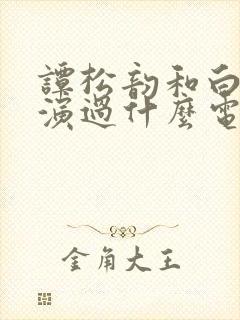 譚松韵和白
演過什麼電
金角大王